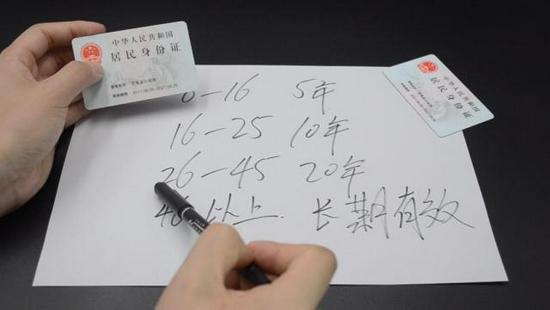 中华人民共和国
居民身份证
中华人民共和国
居民身份证
16-25 10年
26-45 20年
46以上. 长期有效
-16 5年